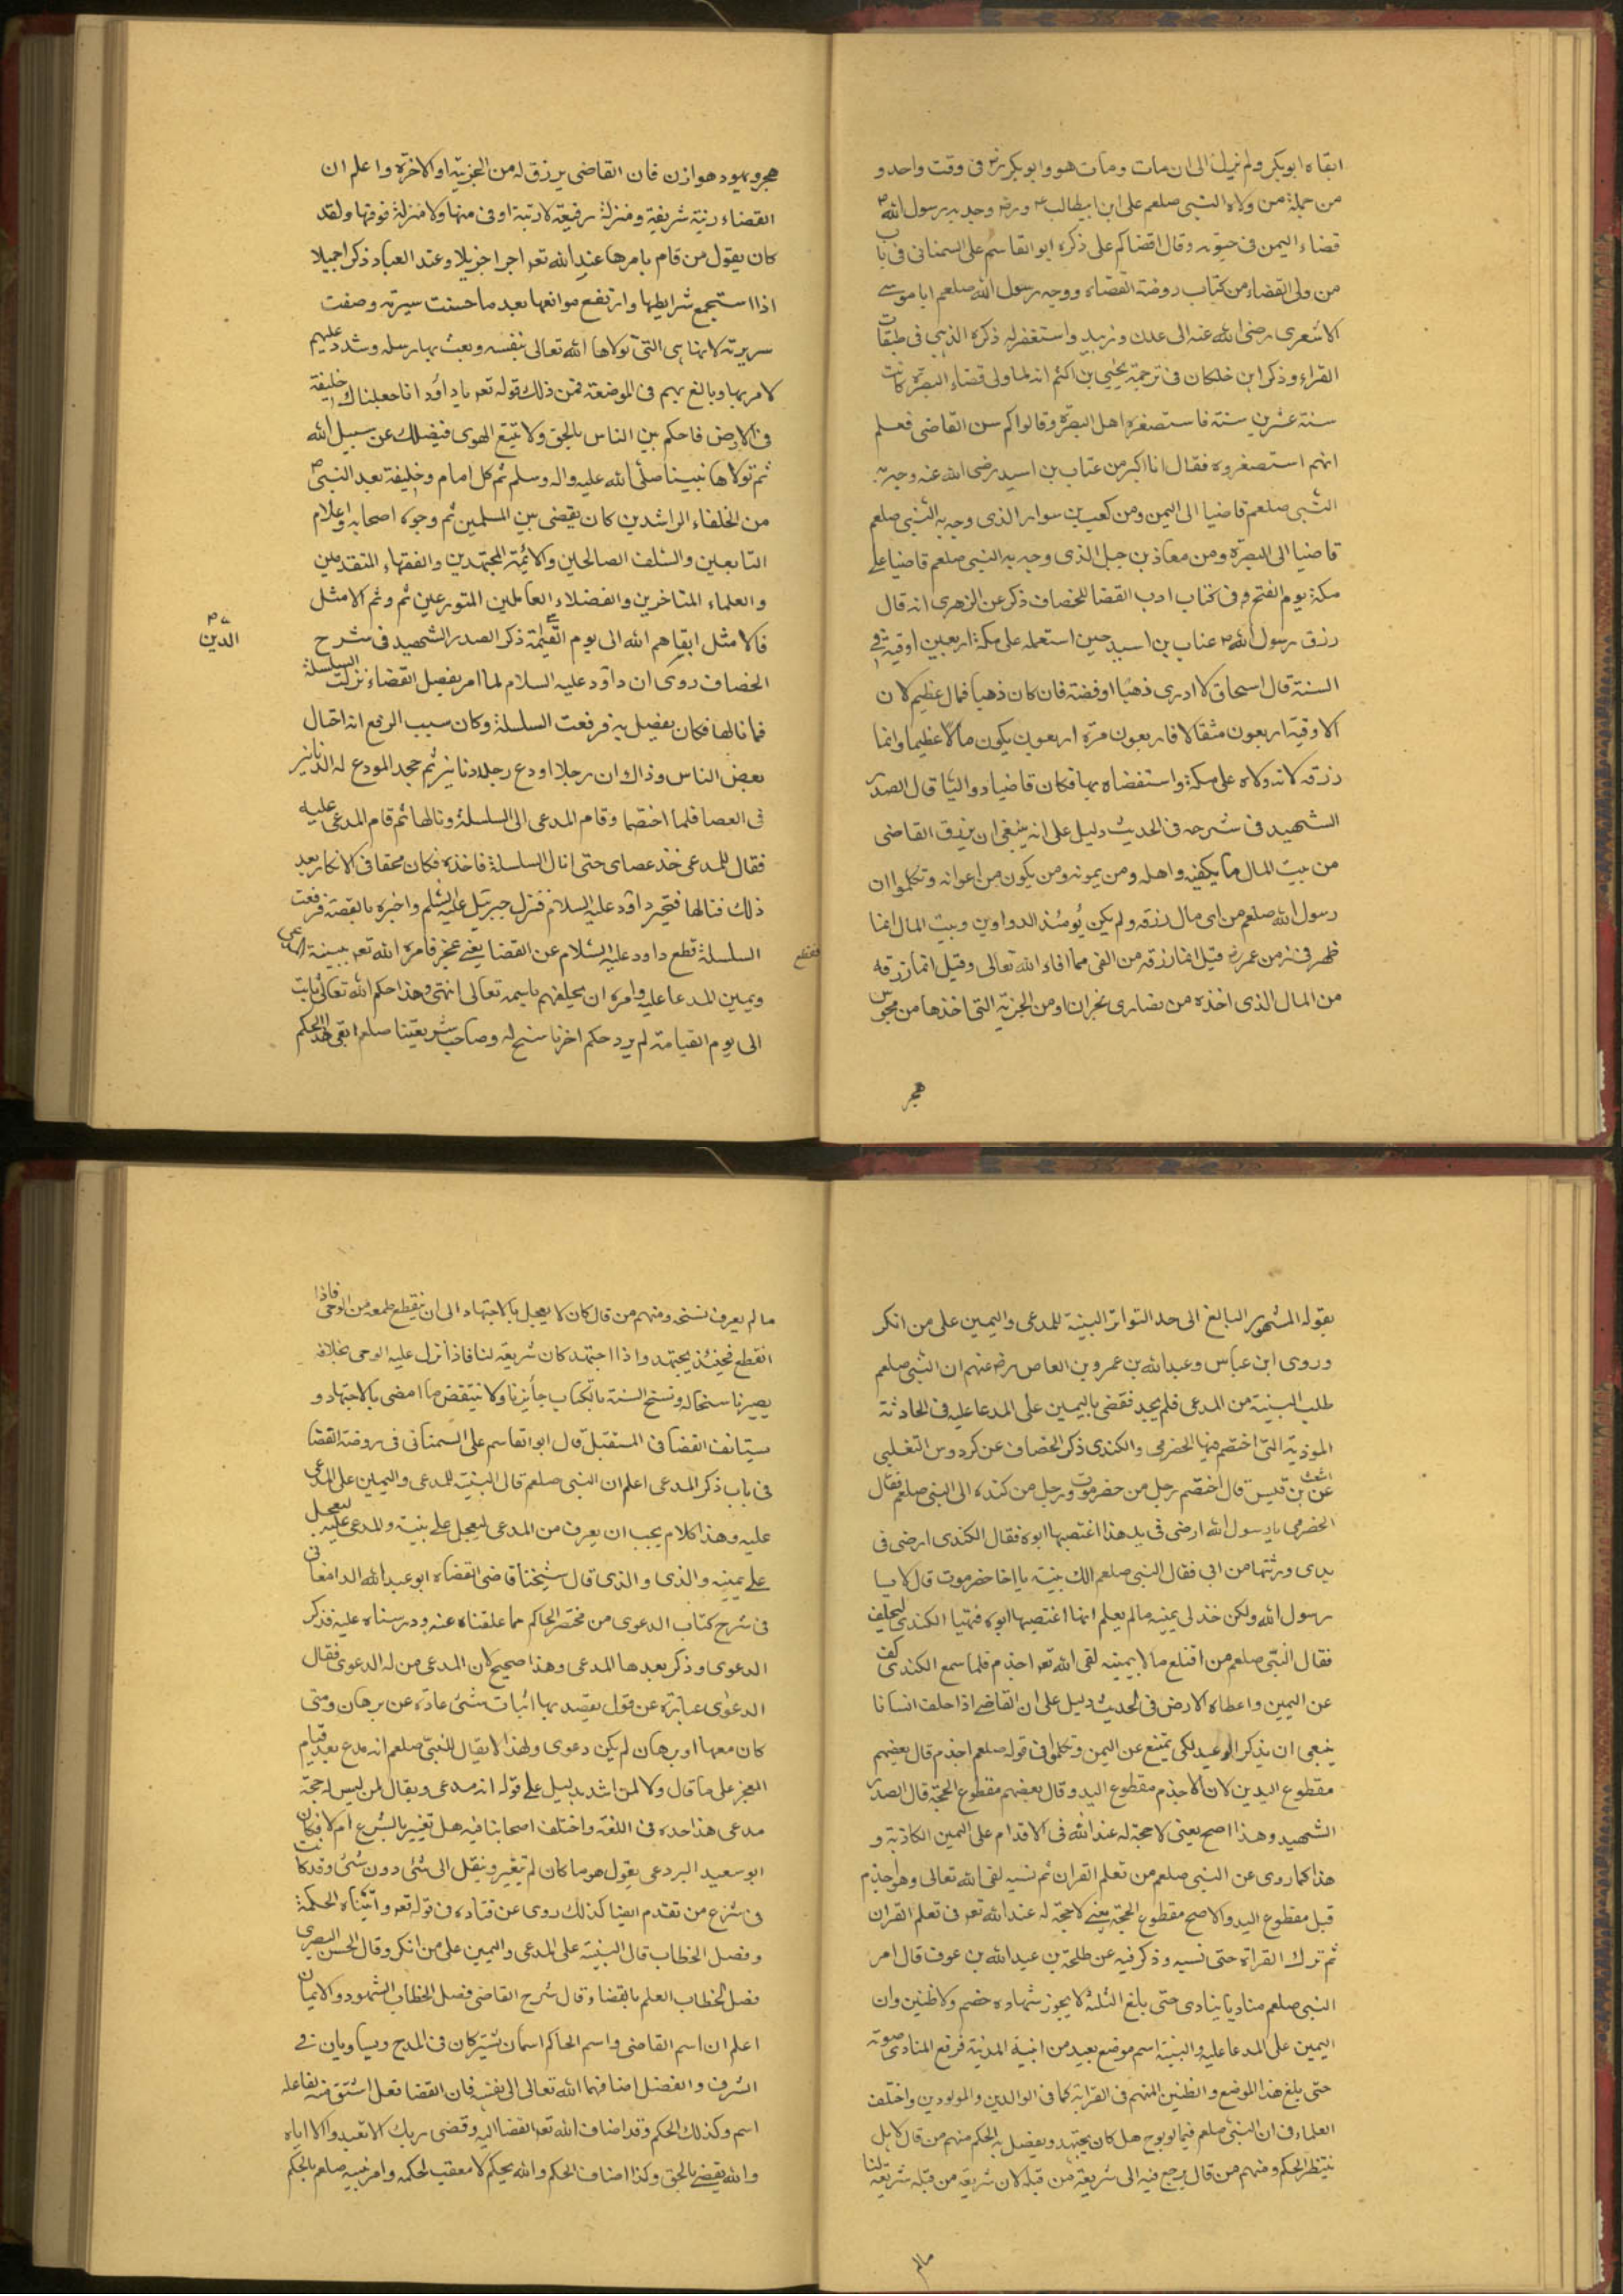 ابقاه ابوبكر ولم يزل الى ان مات ومات هو وابوبكر رض فى وقت واحد و
من جملة من ولاه النبى صلعم على ابن ابيطالب رض وجه به رسول الله ص
قضاء اليمن فى حيوته وقال اقضاكم على ذكره ابو القاسم على السمنانى فى باب
من ولى القضاء من كتاب روضة القضاة ووجه رسول الله صلعم ابا موسى
الاشعرى رضى الله عنه الى عدن وزبيد واستغفر له ذكره الذهبى فى طبقات
القراء وذكر ابن خلكان فى ترجمة يحيى بن اكثم انه لما ولى قضاء البصرة كانت
سنة عشرين سنة فاستصغره اهل البصرة وقالوا كم سن القاضى فعلم
انهم استصغروه فقال انا اكبر من عتاب بن اسيد رضى الله عنه وجه به
النبى صلعم قاضيا الى اليمن ومن كعب بن سوار الذى وجه به النبى صلعم
قاضيا الى البصرة ومن معاذ بن جبل الذى وجه به النبى صلعم قاضيا على
مكة يوم الفتح وفى كتاب ادب القضا للخصاف ذكر عن الزهرى انه قال
رزق رسول الله عتاب بن اسيد حين استعمله على مكة اربعين اوقية فى
السنة قال اسحاق لا ادرى ذهبا او فضة فان كان ذهبا فمال عظيم لان
الاوقية اربعون مثقالا فاربعون مرة اربعون يكون مالا عظيما وانما
رزقه لانه ولاه على مكة واستقضاه بها فكان قاضيا وواليا قال الصدر
الشهيد فى شرحه فى الحديث دليل على انه ينبغى ان يرزق القاضى
من بيت المال ما يكفيه واهله ومن يمونه ومن يكون من اعوانه وتكلموا ان
رسول الله صلعم من اى مال رزقه ولم يكن يومئذ الدواوين وبيت المال انما
ظهر فى زمن عمر رض قيل انما رزقه من الفى مما افاء الله تعالى وقيل انما رزقه
من المال الذى اخذه من نصارى نجران او من الجزية التى اخذها من مجوس
هجر
هجر ويهود هوازن فان القاضى يرزق له من الجزية او الاخرة واعلم ان
القضاء رتبة شريفة ومنزلة رفيعة لا رتبة اوفى منها ولا منزلة فوقها ولقد
كان يقول من قام بامرها عند الله تعر اجرا جزيلا وعند العباد ذكرا جميلا
اذا استجمع شرايطها وارتفع موانعها بعد ما حسنت سيرته وصفت
سريرته لانها هى التى تولاها الله تعالى بنفسه وبعث بها رسله وشدد عليهم
لامر بها وبالغ بهم فى الموضعة فمن ذلك قوله تعر يا داود انا جعلناك خليفة
فى الارض فاحكم بين الناس بالحق ولا تتبع الهوى فيضلك عن سبيل الله
ثم تولاها نبينا صلى الله عليه واله وسلم ثم كل امام وخليفة بعد النبى ص
من الخلفاء الراشدين كان يقضى بين المسلمين ثم وجوه اصحابه واعلام
التابعين والسلف الصالحين والائمة المجتهدين والفقهاء المتقدمين
والعلماء المتاخرين والفضلاء العاملين المتورعين ثم وثم الامثل
فالامثل ابقاهم الله الى يوم القيمة ذكر الصدر الشهيد فى شرح
الدين
الخصاف روى ان داود عليه السلام لما امر بفصل القضاء نزلت السلسلة
فما نالها فكان يفصل به فرفعت السلسلة وكان سبب الرفع انه احتال
بعض الناس وذاك ان رجلا اودع رجلا دنانير ثم جحد المودع له الدنانير
فى العصا فلما اختصما وقام المدعى الى السلسلة ونالها ثم قام المدعى عليه
فقال للمدعى خذ عصاى حتى انال السلسلة فاخذه فكان محقا فى الانكار بعد
ذلك فنالها فتحير داود عليه السلام فنزل جبرئيل عليه السلم واخبره بالقصة فرفعت
السلسلة قطع داود عليه السلام عن القضا يعنى عجز فامره الله تعر ببينة المدعى
فقطع
ويمين المدعا عليه وامره ان يحلفهم باسمه تعالى انتهى وهذا حكم الله تعالى ثابت
الى يوم القيامة لم يرد حكم اخر ناسخ له وصاحب شريعتنا صلعم ابقى هذا الحكم
بقوله المشهور البالغ الى حد التواتر البينة للمدعى واليمين على من انكر
وروى ابن عباس وعبد الله بن عمرو بن العاص رض عنهم ان النبى صلعم
طلب البينة من المدعى فلم يجد فقضى باليمين على المدعا عليه فى الحادثة
الموذية التى اختصم فيها الحضرمى والكندى ذكر الخصاف عن كردوس التغلبى
عن اشعث بن قيس قال اختصم رجل من حضرموت ورجل من كنده الى النبى صلعم فقال
الحضرمى يا رسول الله ارضى فى يد هذا اغتصبها ابوه فقال الكندى ارضى فى
يدى ورثتها من ابى فقال النبى صلعم الك بينة يا اخا حضرموت قال لا يا
رسول الله ولكن خذ لى يمينه ما لم يعلم انما اغتصبها ابوه فتهيا الكندى ليحلف
فقال النبى صلعم من اقتلع مالا بيمينه لقى الله تعر اجذم فلما سمع الكندى كف
عن اليمين واعطاه الارض فى الحديث دليل على ان القاضى اذا حلف انسانا
ينبغى ان يذكر الوعيد لكى يمتنع عن اليمن وتكلموا فى قوله صلعم اجذم قال بعضهم
مقطوع اليدين لان الاجذم مقطوع اليد وقال بعضهم مقطوع الحجة قال الصدر
الشهيد وهذا اصح يعنى لا حجة له عند الله فى الاقدام على اليمين الكاذبة و
هذا كما روى عن النبى صلعم من تعلم القران ثم نسيه لقى الله تعالى وهو اجذم
قيل مقطوع اليد والاصح مقطوع الحجة يعنى لا حجة له عند الله تعر فى تعلم القران
ثم ترك القراة حتى نسيه وذكر فيه عن طلحة بن عبد الله بن عوف قال امر
النبى صلعم مناديا ينادى حتى بلغ الثلثة لا يجوز شهاده خصم ولا ظنين وان
اليمين على المدعا عليه والبنية اسم موضع بعيد من ابنية المدينة فرفع المنادى صوته
حتى بلغ هذا الموضع والظنين المتهم فى القرابة كما فى الوالدين والمولودين واختلف
العلماء فى ان النبى صلعم فيما لو يوح هل كان يجتهد ويفصل به الحكم منهم من قال لا بل
ينتظر الحكم ومنهم من قال يرجع فيه الى شريعة من قبله لان شريعة من قبله شريعة لنا
مالم
مالم يعرف نسخه ومنهم من قال كان لا يعجل بالاجتهاد الى ان ينقطع طمعه من الوحى فاذا
انقطع فحينئذ يجتهد واذا اجتهد كان شريعة لنا فاذا انزل عليه الوحى بخلافه
يصير ناسخا له ونسخ السنة بالكتاب جايز ولا ينتقض ما امضى بالاجتهاد و
يستانف القضا فى المستقبل قال ابو القاسم على السمنانى فى روضة القضا
فى باب ذكر المدعى اعلم ان النبى صلعم قال البينة للمدعى واليمين على المدعى
عليه وهذا كلام يجب ان يعرف من المدعى ليعجل على بنية والمدعى عليه ليعجل
على يمينه والذى والذى قال شيخنا قاضى القضاه ابو عبد الله الدامغانى
فى شرح كتاب الدعوى من مختصر الحاكم مما علقناه عنه ودرسناه عليه فذكر
الدعوى وذكر بعدها المدعى وهذا صحيح لان المدعى من له الدعوى فقال
الدعوى عبارة عن قول يقصد بها اثبات شئ عادة عن برهان ومتى
كان معها برهان لم يكن دعوى ولهذا لا يقال للنبى صلعم انه مدع بعد قيام
المعجز على ما قال ولا لمن اشد بدليل على قوله انه مدعى ويقال لمن ليس له حجة
مدعى هذا حده فى اللغة واختلف اصحابنا فيه هل تغيير بالشرع ام لا فكان
ابو سعيد البردعى يقول هو ما كان لم تغير وينقل الى شئ دون شئ وقد كانت
فى شرع من تقدم ايضا كذلك روى عن قتاده فى قوله تعر واتيناه الحكمة
وفصل الخطاب قال البينة على المدعى واليمين على من انكر وقال الحسن البصرى
فصل الخطاب العلم بالقضاء وقال شرح القاضى فصل الخطاب الشهود والايمان
اعلم ان اسم القاضى واسم الحاكم اسمان يشتركان فى المدح ويساويان فى
الشرف والفضل اضافهما الله تعالى الى نفسه فان القضا فعل اشتق منه لفاعله
اسم وكذلك الحكم وقد اضاف الله تعر القضا اليه وقضى ربك الا تعبدوا الا اياه
والله يقضى بالحق وكذا اضاف الحكم والله يحكم لا معقب لحكمه وامر نبيه صلعم بالحكم